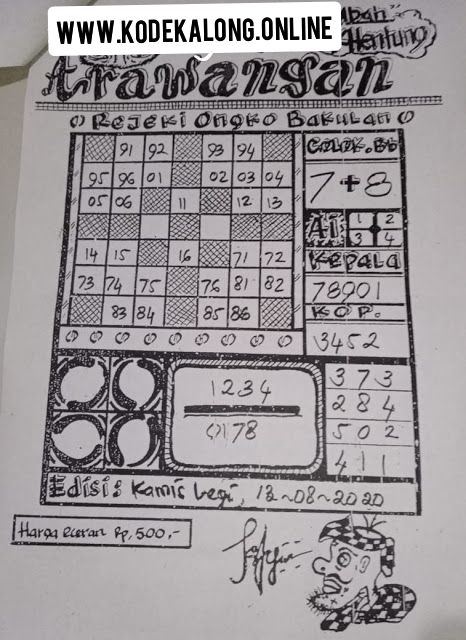 WWW.KODEKALONG.ONLINE
Hentung
Arawangan
Rejeki Ongko Bakulan
91 92 93 94
95 96 01 02 03 04
05 06 11 12 13
14 15 16 71 72
73 74 75 76 81 82
83 84 85 86
COLOK. Bb
7 + 8
Ai 1 2
3 4
KEPALA
78901
KOP.
3452
1234
0178
373
284
502
411
Edisi: Kamis Legi, 13~08~2020
Harga Eceran Rp. 500,-